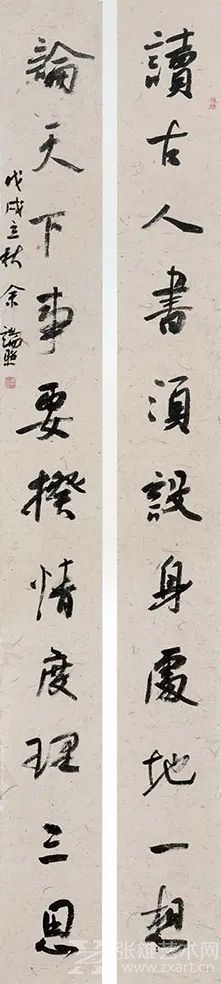 讀古人書須設身處地一想
論天下事要揆情度理三思
戊戌立秋 余端照
张雄艺术网
www.zxart.cn